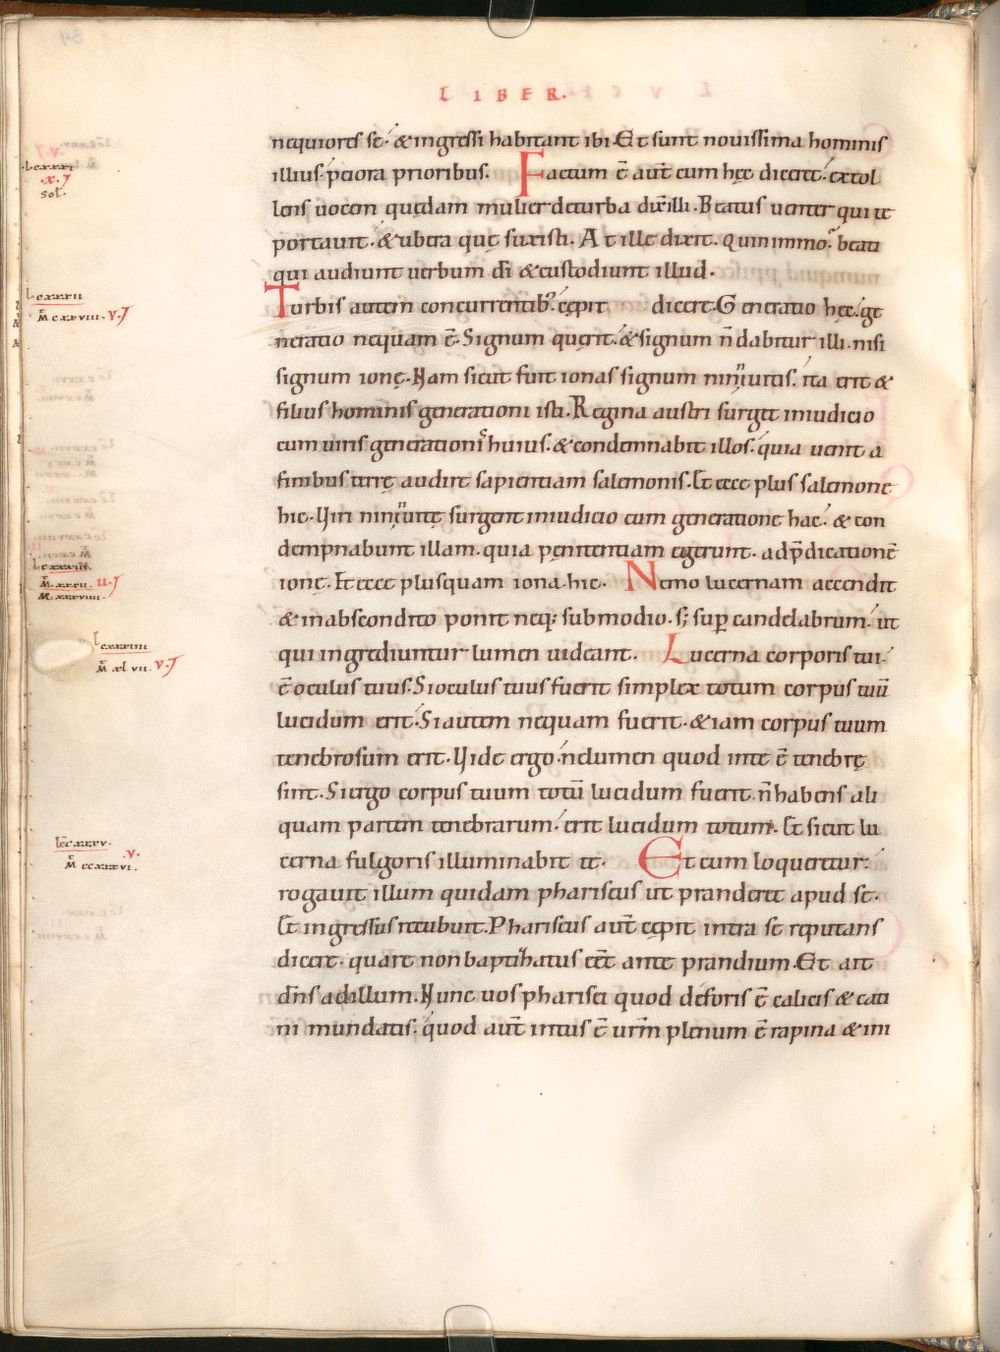 LIBER.
nequiores se· & ingressi habitant ibi. Et sunt novissima hominis
illius peiora prioribus. Factum ē aut̄ cum hęc diceret· extol
lens uocem quędam mulier de turba dix illi. Beatus uenter qui te
portauit· & ubera quę suxisti. At ille dixit. Quin immo· beati
qui audiunt uerbum dī & custodiunt illud.
Turbis autem concurrentib; cępit dicere. Generatio hęc· ge
neratio nequam ē. Signum quęrit· & signum n̄ dabitur illi· nisi
signum ionę. Nam sicut fuit ionas signum niniuitis· ita erit &
filius hominis generationi isti. Regina austri surget in iudicio
cum uiris generationis huius· & condemnabit illos· quia uenit a
finibus terrę audire sapientiam salemonis. Et ecce plus salemone
hic. Viri niniuitę surgent in iudicio cum generatione hac· & con
dempnabunt illam· quia pęnitentiam egerunt· ad p̄dicationē
ionę. Et ecce plusquam iona hic. Nemo lucernam accendit
& in abscondito ponit neq; sub modio· s; sup candelabrum· ut
qui ingrediuntur lumen uideant. Lucerna corporis tui·
ē oculus tuus. Si oculus tuus fuerit simplex totum corpus tuū
lucidum erit. Si autem nequam fuerit· & iam corpus tuum
tenebrosum erit. Vide ergo· ne lumen quod in te ē tenebrę
sint. Si ergo corpus tuum totū lucidum fuerit n̄ habens ali
quam partem tenebrarum· erit lucidum totum. Et sicut lu
cerna fulgoris illuminabit te. Et cum loqueretur·
rogauit illum quidam phariseus ut pranderet apud se·
Et ingressus recubuit. Phariseus aut̄ cępit intra se reputans
dicere· quare non baptizatus eēt ante prandium. Et ait
dn̄s ad illum. Nunc uos pharisei quod deforis ē calicis & cati
ni mundatis· quod aut̄ intus ē urm̄ plenum ē rapina & ini
sol.
Lcxxxii
M cxxviii. v.
Lcxxxiii
M xxxii. ii.
M xxxviiii.
Lcxxxiiii
M xlvii. v.
Lc cxxxv.
v.
M ccxxxvi.